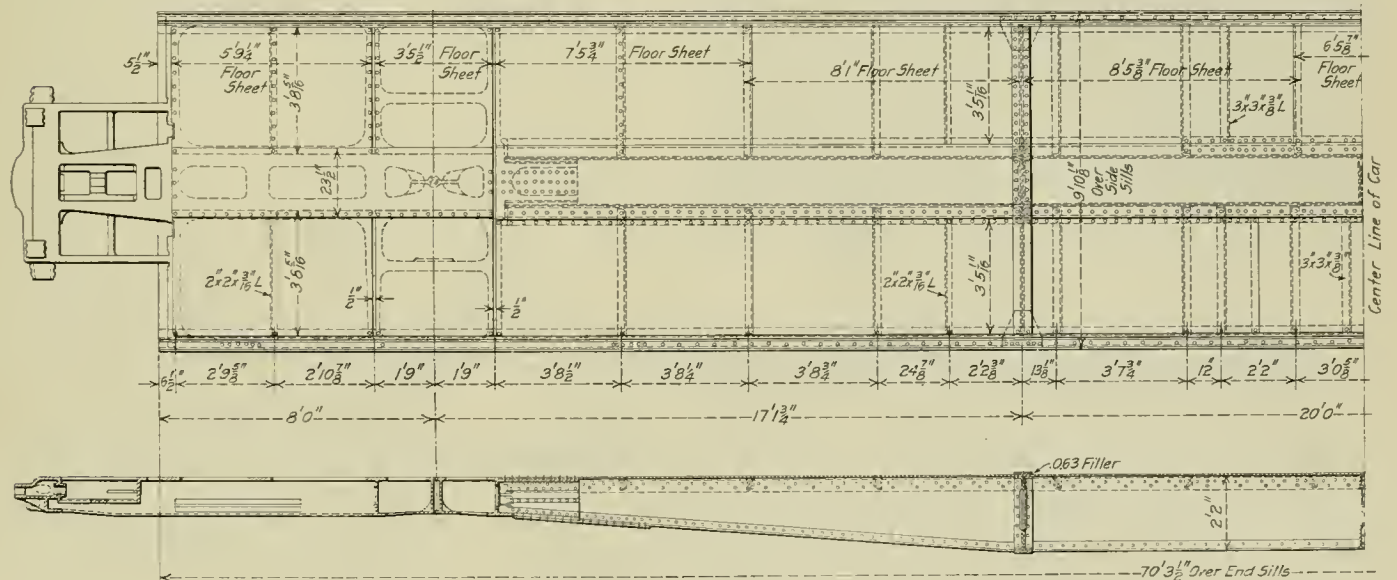 5½" 5'9¼" 3'5½" Floor 7'5¾" Floor Sheet 6'5⅞"
Floor Sheet Sheet 8'1" Floor Sheet 8'5⅜" Floor Sheet Floor Sheet
3'8 5/16" 3'5 1/16" 3"x3"x⅜" L
23½" 9'10⅛" Over Side Sills
Center Line of Car
2"x2"x3/16" L 3'8 5/16" ½" ½" 2"x2"x3/16" L 3'5 1/16" 3"x3"x⅜" L
6½" 2'9⅝" 2'10⅞" 1'9" 1'9" 3'8½" 3'8¼" 3'8¾" 24⅞" 2'2⅜" 13⅛" 3'7¾" 12" 2'2" 3'0⅝"
8'0" 17'1¾" 20'0"
.063 Filler
2'2"
70'3½" Over End Sills